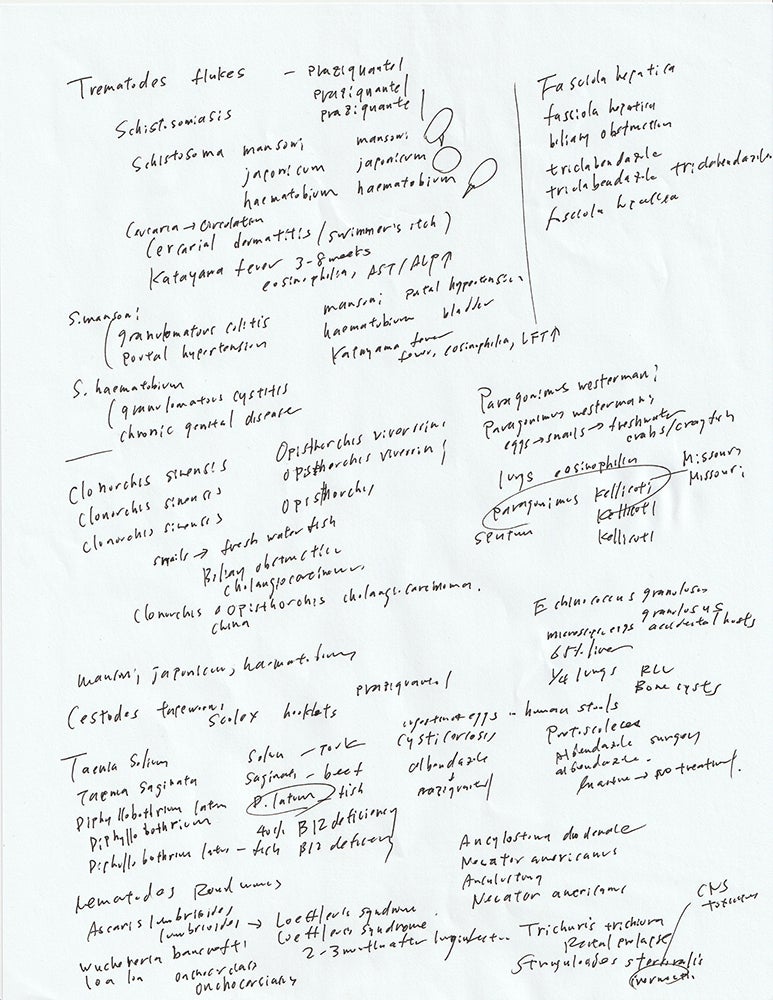 Trematodes flukes - praziquantel
praziquantel
praziquante
Schistosomiasis
Schistosoma mansoni mansoni
japonicum japonicum
haematobium haematobium
Cercaria → circulation
Cercarial dermatitis (swimmer's itch)
Katayama fever 3-8 weeks
eosinophilia, AST/ALP↑
S. mansoni
granulomatous colitis
portal hypertension
mansoni portal hypertension
haematobium bladder
Katayama fever
fever, eosinophilia, LFT↑
S. haematobium
granulomatous cystitis
chronic genital disease
Fasciola hepatica
fasciola hepatica
biliary obstruction
triclabendazole
triclabendazole triclabendazole
fasciola hepatica
Clonorchis sinensis Opisthorchis viverrini
Clonorchis sinensis Opisthorchis viverrini
Clonorchis sinensis Opisthorchis
snails → fresh water fish
Biliary obstruction
cholangiocarcinoma
Clonorchis Opisthorchis cholangiocarcinoma.
China
Paragonimus westermani
Paragonimus westermani
eggs → snails → freshwater
crabs/crayfish
lungs eosinophilia
Paragonimus Kellicoti Missouri
Missouri
sputum Kellicoti
Kellicoti
mansoni, japonicum, haematobium
Cestodes tapeworms praziquantel
Scolex hooklets
Taenia Solium Solium - Pork
Taenia Saginata Saginata - beef
Diphyllobothrium latum D. latum - fish
Diphyllobothrium B12 deficiency
Diphyllobothrium latum - fish B12 deficiency
ingestion of eggs - human stools
cysticercosis
albendazole
+
praziquantel
Echinococcus granulosus
granulosus
microscopic eggs accidental hosts
65% liver
1/4 lungs RLL
Bone cysts
Protoscoleces
Albendazole surgery
albendazole.
Inactive → no treatment.
Nematodes Roundworms
Ascaris lumbricoides
lumbricoides → Loeffler's syndrome
Loeffler's syndrome.
2-3 months after
Wuchereria bancrofti
loa loa onchocerciasis
onchocerciasis
Ancylostoma duodenale
Necator americanus
Ancylostoma
Necator americanus
Trichuris trichiura
Rectal prolapse
Strongyloides stercoralis
ivermectin
CNS